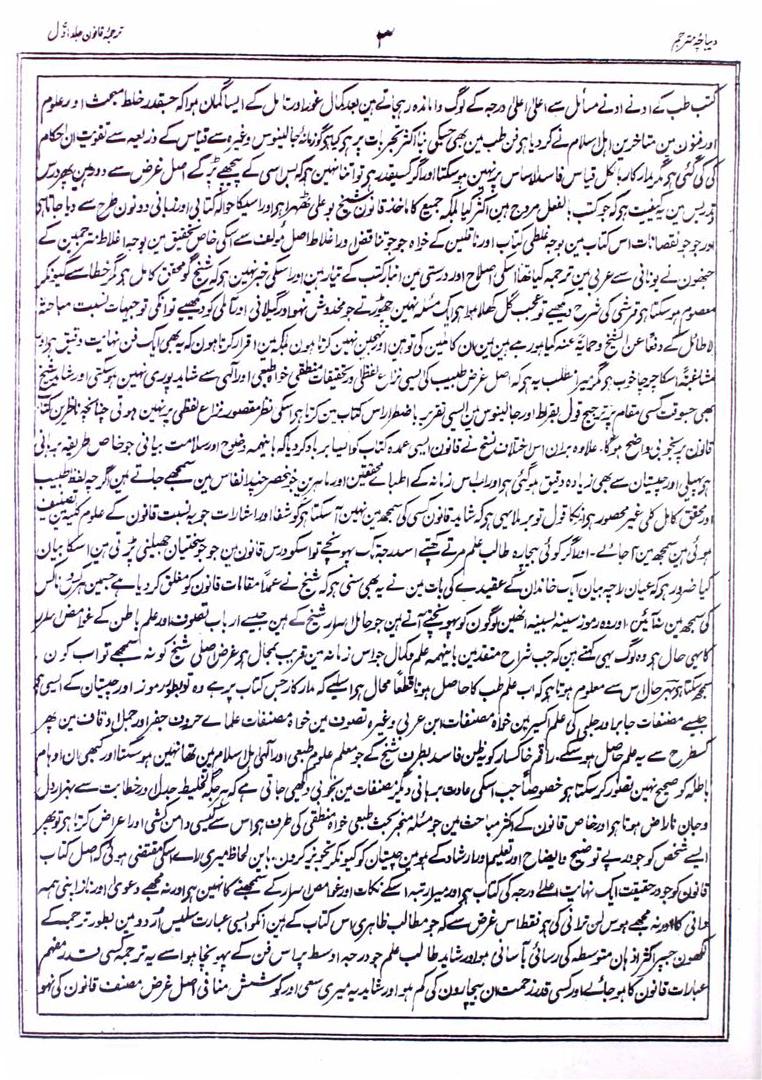 دیباچہ مترجم ۳ ترجمہ قانون جلد اول
کتب طب کے ادنے ادنے مسائل سے اعلیٰ اعلیٰ درجہ کے لوگ واماندہ رہجاتے ہین بعد کمال غور اور تامل کے ایسا گمان ہوا کہ جسقدر خلط مبحث اور علوم
اور فنون مین متاخرین اہل اسلام نے کردیا ہو فن طب مین بھی جسکی بنا اکثر تجربات پر ہو کیا ہو گو زمانۂ جالینوس وغیرہ سے قیاس کے ذریعہ سے تقویت ان احکام
کی کی گئی ہو مگر مدار کار بالکل قیاس فاسد الاساس پر نہین ہوسکتا اور اگر کسیقدر ہو تو اتنا نہین ہو کہ بس اسی کے پیچھے پڑ کے اصل غرض سے دور ہین پھر درس
تدریس مین یہ کیفیت ہو کہ جو کتب بالفعل مروج ہین اکثر کیا بلکہ جمیع کا ماخذ قانون شیخ بو علی ٹھہرا ہو اور اسیکا حوالہ کتابی اور زبانی دونون طرح سے دیا جاتا ہو
اور جو جو نقصانات اس کتاب مین بوجہ غلطی کتاب اور ناقلین کے خواہ جو جو تناقض اور اغلاط اصل مؤلف سے اسکی خاص تحقیق مین بوجہ اغلاط مترجمین کے
جنھون نے یونانی سے عربی مین ترجمہ کیا تھا اسکی اصلاح اور درستی مین انبار کتب کے تیار ہین اور اسکی خبر نہین ہو کہ شیخ گو محقق کامل ہو مگر خطا سے کیونکر
معصوم ہو سکتا ہو قرشی کی شرح دیکھیے تو عجب گل کھلا ہوا ہو ایک مسئلہ نہین چھوڑتے جو مخدوش نہو اور گیلانی اور آملی کو دیکھیے تو انکی توجیہات نسبت مباحثہ
لاطائل کے دفعاً عن الشیخ و حمایۃً عنہ کیا ہو رہے ہین مین ان کاملین کی توہین اور تہجین نہین کرتا ہون بلکہ مین اقرار کرتا ہون کہ یہ بھی ایک فن نہایت دقیق ہو اور
مشاغبہ اسکا جو چا خوب ہو مگر میرا مطلب یہ ہو کہ اصل غرض طبیب کی ایسی نزاع لفظی و تحقیقات منطقی خواہ طبیعی اور آلہی سے شاید پوری نہین ہوسکتی اور شاید شیخ
بھی جسوقت کسی مقام پر ترجیح قول بقراط اور جالینوس مین ایسی تقریر باضطرار اس کتاب مین کرتا ہو اسکی نظر مقصور نزاع لفظی پر نہین ہوتی چنانچہ ناظرین کتاب
قانون پر بخوبی واضح ہوگا، علاوہ بران اس اختلاف نسخ نے قانون ایسی عمدہ کتاب کو ایسا برباد کردیا کہ باینہمہ وضوح اور سلامت بیانی جو خاص طریقہ برہانی
ہو پہیلی اور چیستان سے بھی زیادہ دقیق ہوگئی ہو اور اب اس زمانہ کے اطباے محققین اور ماہرین جو منحصر چند انفاس مین سمجھے جاتے ہین اگرچہ لفظ طبیب
اور محقق کامل کلی غیر محصور ہو انکا قول تو برملا یہی ہو کہ شاید قانون کسی کی سمجھ مین نہین آسکتا ہو گو شفا اور اشارات جو بہ نسبت قانون کے علوم حکمیہ مین تصنیف
ہوئی ہین سمجھ مین آجاے۔ اور اگر کوئی بیچارہ طالب علم مرتے کھپتے اس درجہ تک پہونچے تو اسکو درس قانون مین جو جو سختیان جھیلنی پڑتی ہین اسکا بیان
کیا ضرور ہو کہ عیان راچہ بیان ایک خاندان کے عقیدے کی بات مین نے یہ بھی سنی ہو کہ شیخ نے عمداً مقامات قانون کو مغلق کردیا ہے جسمین ہر کس و ناکس
کی سمجھ مین نہ آئین۔ اور وہ رموز سینہ بسینہ انھین لوگون کو پہونچتے آتے ہین جو حامل اسرار شیخ کے ہین جیسے ارباب تصوف اور علم باطن کے غوامض اسرار
کا یہی حال ہو وہ لوگ یہی کہتے ہین کہ جب شراح متقدمین باینہمہ علم و کمال جو اس زمانہ مین قریب بمحال ہو غرض اصلی شیخ کو نہ سمجھے تو اب کون
سمجھ سکتا ہو بہر حال اس سے معلوم ہوتا ہو کہ اب علم طب کا حاصل ہونا قطعاً محال ہو اسلیے کہ مدار کار جس کتاب پر ہے وہ تو بطور رموز اور چیستان کے ایسی ہو
جیسے مصنفات جابر اور جلدکی علم اکسیر مین خواہ مصنفات ابن عربی وغیرہ تصوف مین خواہ مصنفات علماے حروف جفر اور جمل اوفاق مین پھر
کسطرح سے یہ علم حاصل ہو سکے۔ راقم خاکسار کو یہ ظن فاسد بطرف شیخ کے جو معلم علوم طبیعی اور آلہی اہل اسلام مین تھا نہین ہوسکتا اور کبھی ان اوہام
باطلہ کو صحیح نہین تصور کر سکتا ہو خصوصاً جب اسکی عادت برہانی دیگر مصنفات مین بخوبی دیکھی جاتی ہے کہ ہر جگہ تغلیط جدل اور خطابت سے بہزار دل
و جان ناراض ہوتا ہو اور خاص قانون کے اکثر مباحث مین جو مسئلہ منجر بحث طبیعی خواہ منطقی کی طرف ہو اس سے کیسی دامن کشی اور اعراض کرتا ہو تو پھر
ایسے شخص کو جو درپے توضیح و ایضاح اور تعلیم اور ارشاد کے ہو مین چیستان گو کیونکر تجویز کرون۔ باین لحاظ میری راے اسکی مقتضی ہوئی کہ اصل کتاب
قانون کو جو در حقیقت ایک نہایت اعلے درجہ کی کتاب ہو اور میرا رتبہ اسکے نکات اور غوامض اسرار کے سمجھنے کا نہین ہو اور نہ مجھے دعوی اور ناز اپنی ہمہ
دانی کا اور نہ مجھے ہوس لن ترانی کی ہو فقط اس غرض سے کہ جو مطالب ظاہری اس کتاب کے ہین انکو ایسی عبارت سلیس اردو مین بطور ترجمہ کے
لکھون جسپر اکثر اذہان متوسطہ کی رسائی بآسانی ہو اور شاید طالب علم جو درجہ اوسط پر اس فن کے پہونچا ہو اسے یہ ترجمہ کسی قدر مفہم
عبارات قانون کا ہو جائے اور کسی قدر زحمت ان بیچارون کی کم ہو اور شاید یہ میری سعی اور کوشش منافی اصل غرض مصنف قانون کی نہو